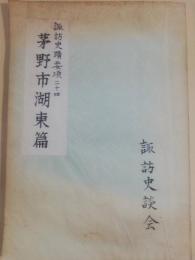 諏訪史蹟要項二十四
茅野市湖東篇
諏訪史談会